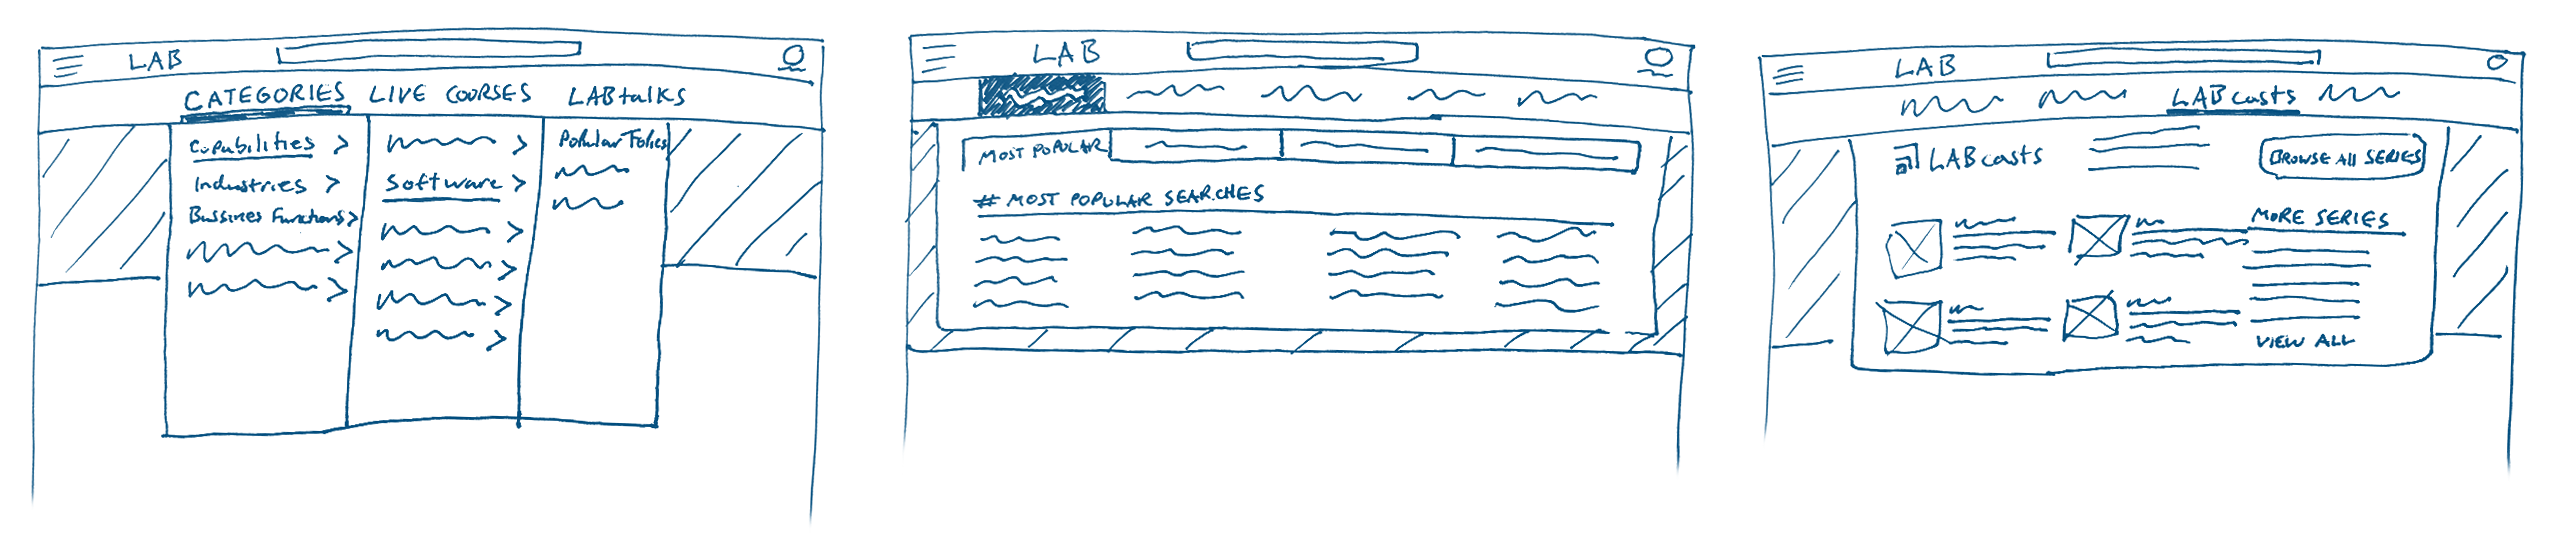 LAB
CATEGORIES LIVE COURSES LABtalks
Capabilities >
Industries >
Bussines Functions >
>
>
>
Software >
>
>
>
>
Popular
LAB
MOST POPULAR
# MOST POPULAR SEARCHES
LAB
LABcasts
LABcasts
BROWSE All SERIES
MORE SERIES
VIEW ALL